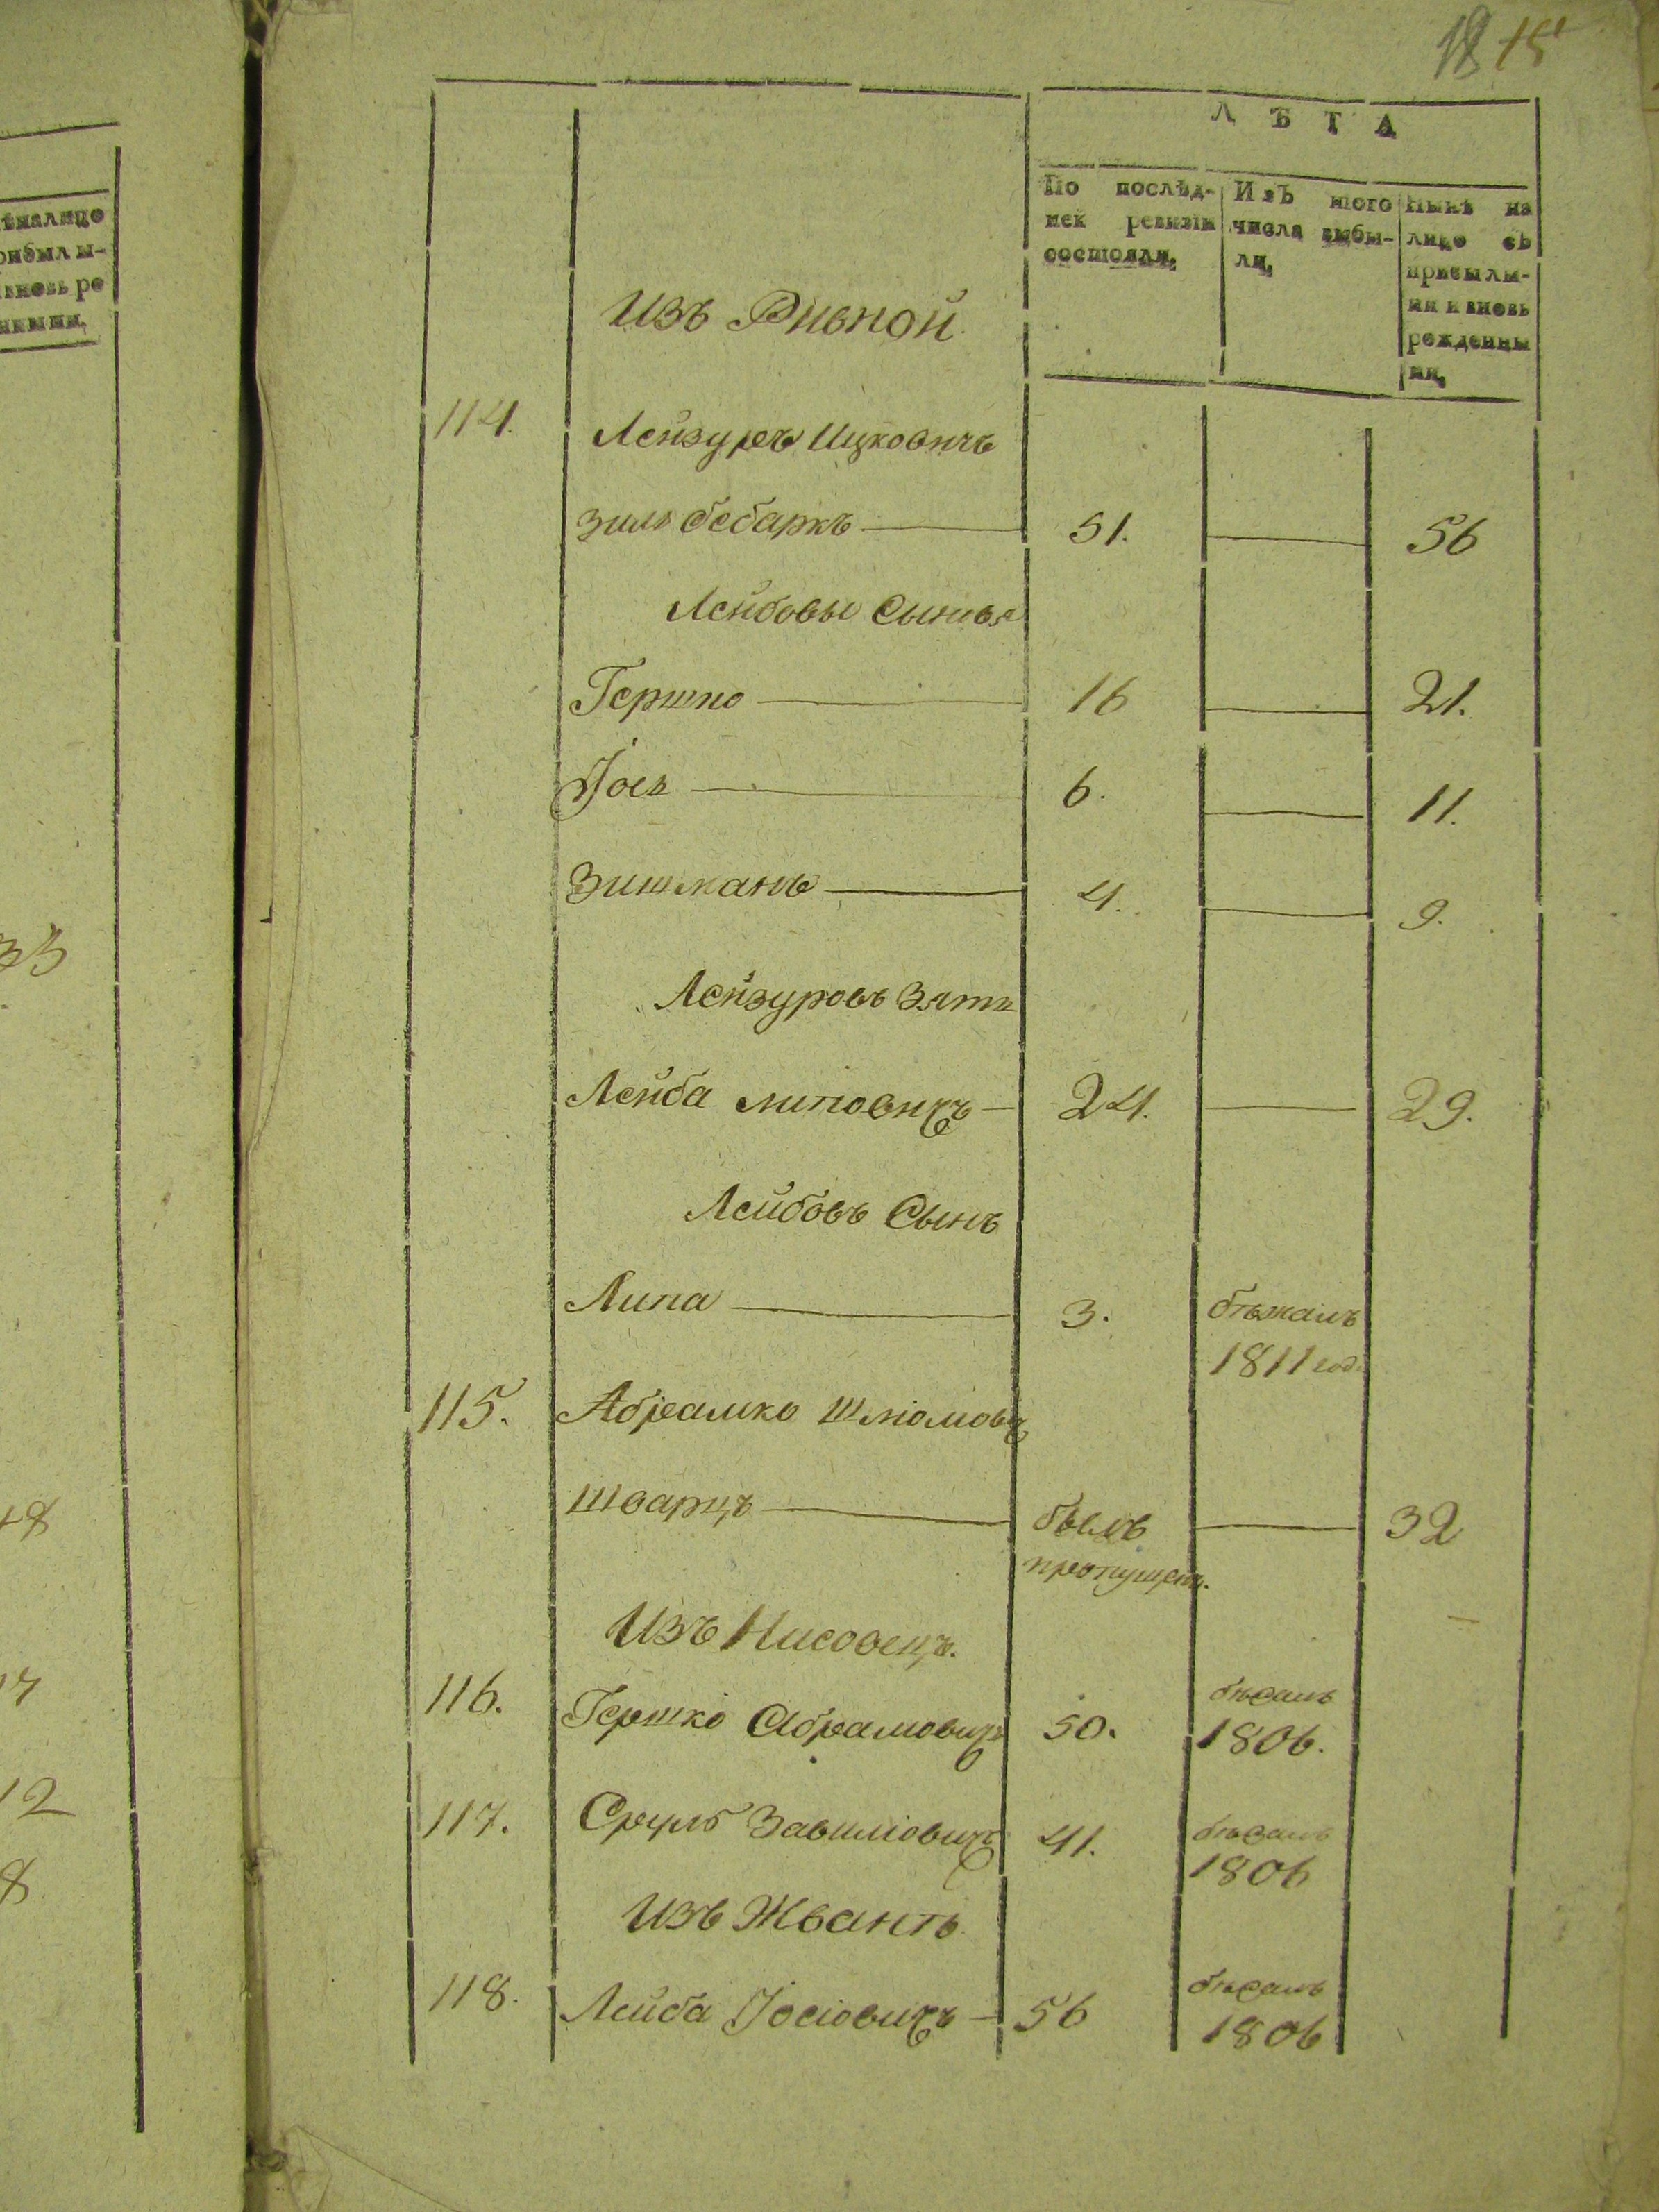 18 15
ЛѢТА
По послѣд- Изъ того Нынѣ на
ней ревизіи числа выбы- лицо съ
состояли, ли, прибылы-
ми и вновь
рожденны
ми,
Изъ Рипной
114. Лейзуръ Ицковичъ
Зильбебаркъ 51. 56
Лейбовы Сыновья
Гершко 16 21.
Іось 6. 11.
Зишманъ 4. 9.
Лейзуровъ Зять
Лейба липовичъ 24. 29.
Лейбовъ Сынъ
Липа 3. бѣжалъ
1811 год.
115. Абрамко Шліомович
Шварцъ былъ 32
пропущен.
Изъ Нисовець.
116. Гершко Абрамовичъ 50. бѣжалъ
1806.
117. Сруль Завиліовичъ 41. бѣжалъ
1806
Изъ Жвантъ
118. Лейба Іосіовичъ 56 бѣжалъ
1806
ѣ налицо
рибылы-
вновь ро
нными,
33
48
17
12
8